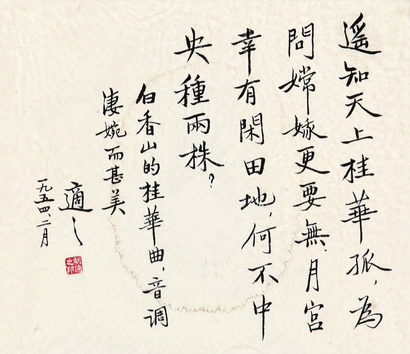 遙知天上桂華孤,為
問嫦嫁更要無.月宮
幸有閑田地,何不中
央種兩株?
白香山的桂華曲,音調
淒婉而甚美
適之
一九五四,二月